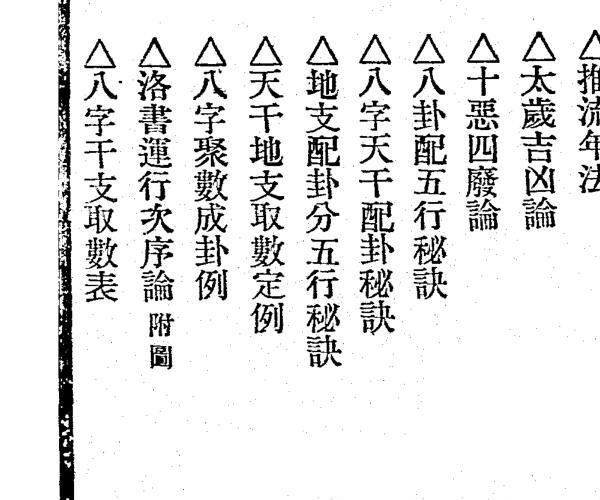 △推流年法
△太歲吉凶論
△十惡四廢論
△八卦配五行秘訣
△八字天干配卦秘訣
△地支配卦分五行秘訣
△天干地支取數定例
△八字聚數成卦例
△洛書運行次序論 附圖
△八字干支取數表